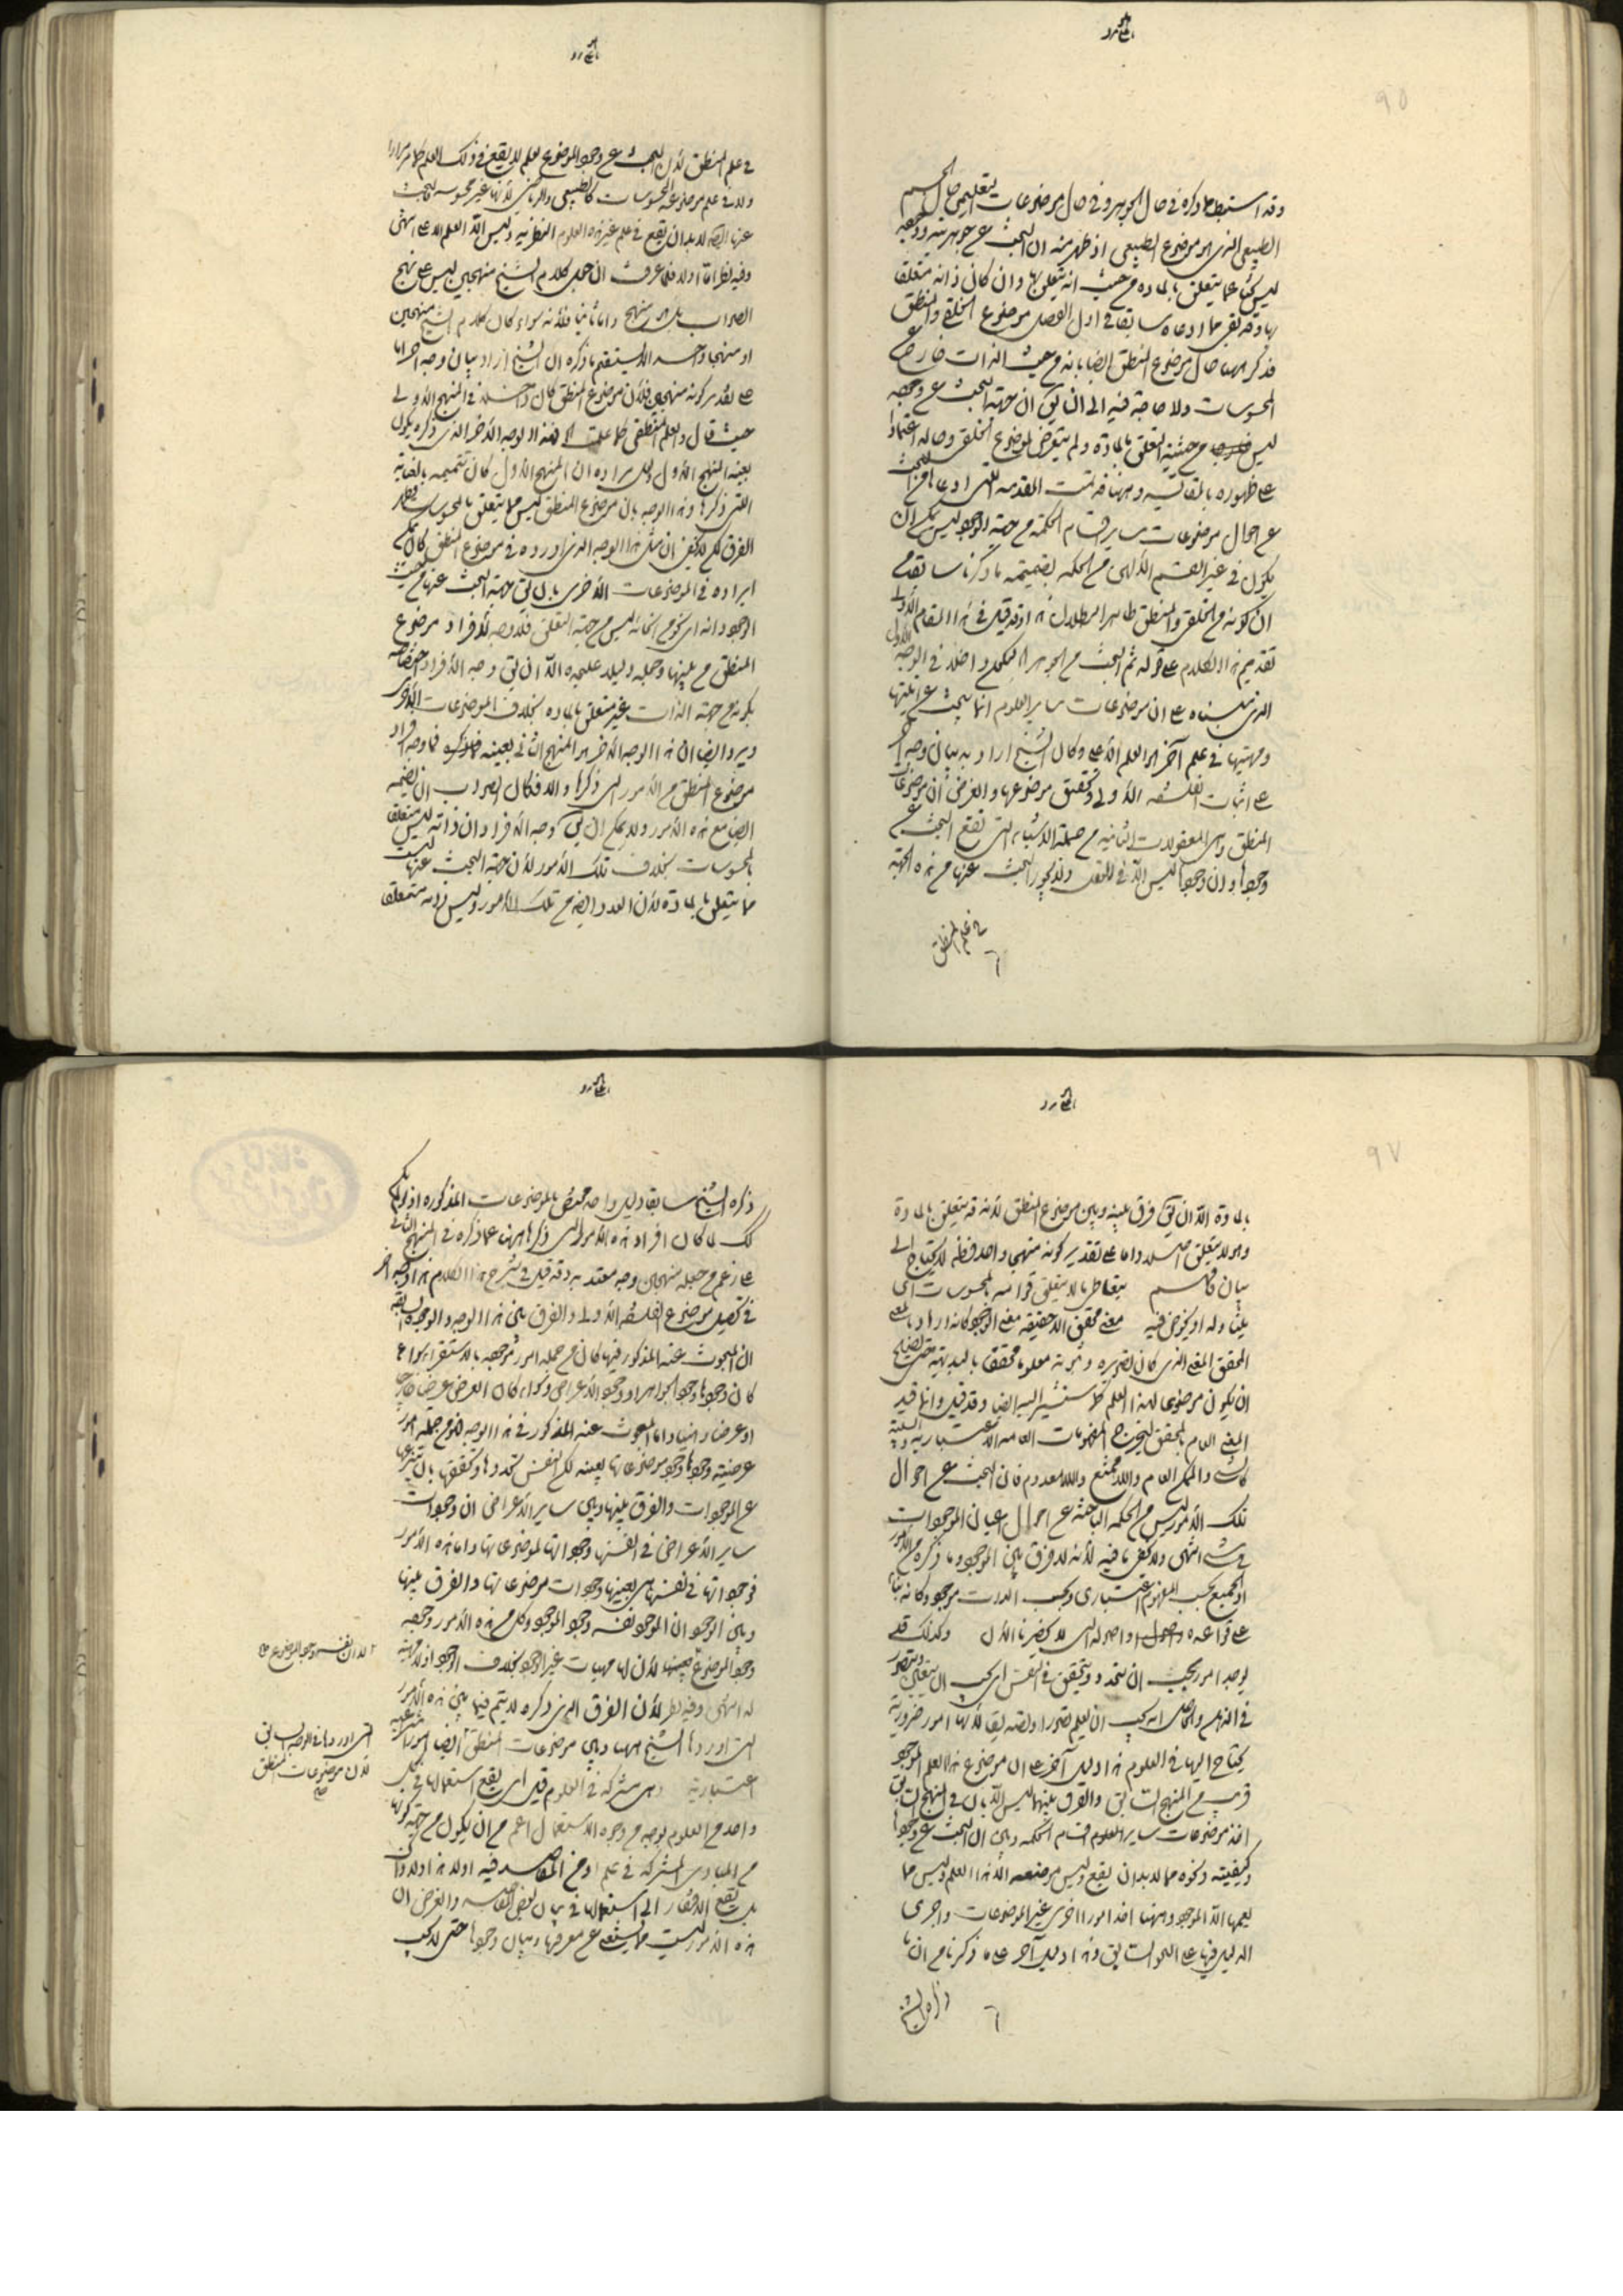 ٩٥
وقد استنبط ما ذكره في حال الجوهر وفي حال موضوعات يتعلق حال الجسم
الطبيعي الذي هو موضوع الطبيعي اذ ظهر منه ان البحث عن جوهريته ووجوده
ليس بحثا عما يتعلق بالمادة من حيث انه يتعلق بها وان كان ذاته متعلقا
بها وقد بقي مما ادعاه سابقا في اول الفصل موضوع الخلقي والمنطق
فذكر ههنا حال موضوع المنطق ايضا بانه من حيث الذات خارج عن
المحسوسات ولا حاجة فيه الى ان يق ان جهة البحث عن وجوده
ليس من حيثية التعلق بالمادة ولم يتعرض لموضوع الخلقي وحاله اعتمادا
على ظهوره بالمقايسة وههنا قد تمت المقدمة التي ادعاها من ان البحث
عن احوال موضوعات ساير اقسام الحكمة من جهة الوجود ليس يمكن ان
يكون في غير القسم الالهي من الحكمة بضميمة ما ذكرنا سابقا من
ان كونه من الخلقي والمنطق ظاهر البطلان هذا وقد قيل في هذا المقام الاولى
تقديم هذا الكلام على قوله ثم البحث عن الجوهر ليكون داخلا في الوجه الاول
الذي بيناه على ان موضوعات ساير العلوم انما يبحث عن انيتها
ومهيتها في علم آخر هو العلم الاعلى وكان الشيخ اراد به بيان وجه آخر
على اثبات الفلسفة الاولى وتحقيق موضوعها والغرض ان موضوعات
المنطق وهي المعقولات الثانية من جملة الاشياء التي تقع البحث عن
وجودها وان وجودها ليس الا في العقل ولا يجوز البحث عنها من هذه الجهة
في علم المنطق
في علم المنطق لان البحث عن وجود الموضوع لعلم لا يقع في ذلك العلم كما مر مرارا
ولا في علم موضوعه المحسوسات كالطبيعي والرياضي لانها غير محسوسة فالبحث
عنها ايضا لا بد ان يقع في علم غير هذه العلوم النظرية وليس الا العلم الاعلى انتهى
وفيه نظر اما اولا فلما عرفت ان حمل كلام الشيخ منهجين ليس على نهج
الصواب بل هو منهج واما ثانيا فلانه سواء كان كلام الشيخ منهجين
او منهجا واحدا لا يستقيم ما ذكره ان الشيخ اراد بيان وجه آخر اما
على تقدير كونه منهجين فلان موضوع المنطق كان داخلا في المنهج الاولى
حيث قال والعلم المنطقي كما علمت الا هذا الوجه الآخر الذي ذكره يكون
بعينه المنهج الاول ولعل مراده ان المنهج الاول كان تتميمه بالضابة
التي ذكرها وهذا الوجه بان موضوع المنطق ليس مما يتعلق بالمحسوسات
الفرق لكن لا يخفى ان مثل هذا الوجه الذي اورده في موضوع المنطق كان يمكن
ايراده في الموضوعات الاخرى بان يق جهة البحث عنها من حيث
الوجود انه اي نحو من انحائه ليس من جهة التعلق فلا وجه لافراد موضوع
المنطق من بينها وجعله دليلا عليحده الا ان يق وجه الافراد اختصاصه
بكونه من جهة الذات غير متعلق بالمادة بخلاف الموضوعات الاخرى
ويرد ايضا ان هذا الوجه الآخر هو المنهج الثاني بعينه فما وجه افراد
موضوع المنطق من الامور التي ذكرها والا فكان الصواب ان يضمه
ايضا مع هذه الامور ولا يمكن ان يق وجه الافراد ان ذاته ليس متعلقا
بالمحسوسات بخلاف تلك الامور لان جهة البحث عنها ليست
مما يتعلق بالمادة لان العدد ايضا من تلك الامور وليس ذاته متعلقا
٩٧
بالمادة الا ان يق فرق بينه وبين موضوع المنطق لانه قد يتعلق بالمادة
وهو لا يتعلق اصلا واما على تقدير كونه منهجا واحدا فظ لا يحتاج الى
بيان يتعاطى ما لا يتعلق قوامه بالمحسوسات اي
يتناوله او يخوض فيه معنى محقق الا حقيقة معنى الوجود كانه اراد بالمعنى
المحقق المعنى الذي كان تصوره وثبوته معلوما محققا بالبديهة حتى يصلح
ان يكون موضوعا لهذا العلم كما سنشير اليه ايضا وقد قيل وانما قيد
المعنى العام بالمحقق ليخرج المفهومات العامة الاعتبارية والسلبية
كالشيء والممكن العام واللاممتنع واللامعدوم فان البحث عن احوال
تلك الامور ليس من الحكمة الباحثة عن احوال اعيان الموجودات
في شيء انتهى ولا يخفى ما فيه لانه لا فرق بين الموجود وما ذكره من الامور
اذ الجميع بحسب المفهوم اعتباري وبحسب الذات موجود وكانه بناء
على قواعده واصوله التي لا يحضرنا الآن وكذلك قد
يوجد امور يجب ان تتحدد وتتحقق في النفس اي يجب ان يتعين ويتصور
في الذهن والحاصل انه يجب ان يعلم تصورا وتصديقا لانها امور ضرورية
يحتاج اليها في العلوم هذا دليل آخر على ان موضوع هذا العلم الموجود
قريب من المنهج السابق والفرق بينهما ليس الا بان في المنهج السابق
اخذ موضوعات ساير العلوم اقسام الحكمة وبين ان البحث عن وجودها
وكيفيته ونحوه مما لا بد ان يقع وليس موضعه الا هذا العلم وليس مما
يعمها الا الموجود وههنا اخذ امورا اخرى غير الموضوعات واجرى
الدليل فيها على النحو السابق وهذا دليل آخر على ما ذكرنا من ان ما
ذكره الشيخ
ذكره الشيخ سابقا دليل واحد مختص بالموضوعات المذكورة اذ لو لم يكن
كك لما كان افراد هذه الامور التي ذكرها ههنا عما ذكره في المنهج الثاني
على زعم من جعله منهجين وجه معتد به وقد قيل في شرح هذا الكلام هذا وجه آخر
في تحصيل موضوع الفلسفة الاولى والفرق بين هذا الوجه والوجوه السابقة
ان المبحوث عنه المذكور فيها كان من جملة امور موجودة بالاستقراء سواء
كان وجودها وجود الجواهر او وجود الاعراض وسواء كان العرض عرضا خارجيا
او عرضا ذهنيا واما المبحوث عنه المذكور في هذا الوجه فهو من جملة امور
عرضية وجودها وجود موضوعاتها بعينه لكن النفس تحددها وتحققها بان تنتزعها
عن الموجودات والفرق بينها وبين ساير الاعراض ان وجودات
ساير الاعراض في انفسها وجوداتها لموضوعاتها واما هذه الامور
فوجوداتها في نفسها هي بعينها وجودات موضوعاتها والفرق بينها
وبين الوجود ان الوجود نفسه وجود الموجود وكل من هذه الامور وجوده
وجود الموضوع بعينها لان لها مهيات غير الوجود بخلاف الوجود اذ لا مهية
له انتهى وفيه نظر لان الفرق الذي ذكره لا يتم فيما بين هذه الامور
التي اوردها الشيخ ههنا وبين موضوعات المنطق ايضا امور
اعتبارية وهي مشتركة في العلوم قيل اي يقع استعمالها في كل
واحد من العلوم بوجه من وجوه الاستعمال اعم من ان يكون من جهة كونها
من المبادي المشتركة في علم او من المقاصد فيه اولا هذا ولا ذاك
بل يقع الافتقار الى استعمالها في بيان بعض مقاصده والغرض ان
هذه الامور ليست مما يستغنى عن معرفتها وبيان وجودها حتى لا يجب
لا ان نفسه وجود الموضوع
التي اوردها في الوجه السابق
لان موضوعات المنطق
صح